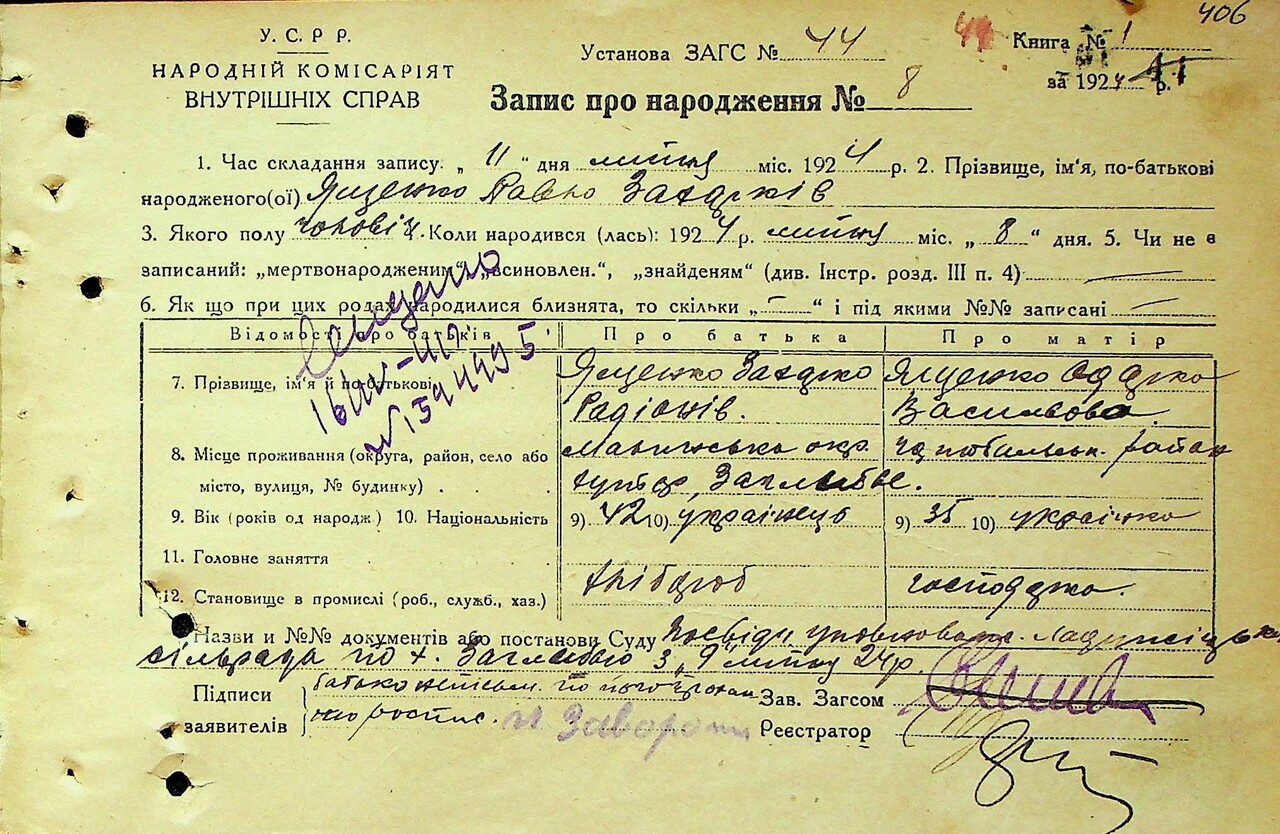 406
У. С. Р. Р.
НАРОДНІЙ КОМІСАРІЯТ
ВНУТРІШНІХ СПРАВ
Установа ЗАГС № 44
Книга № 1
за 1924 р.
Запис про народження № 8
1. Час складання запису. „ 11 “ дня липня міс. 1924 р. 2. Прізвище, ім'я, по-батькові
народженого(ої) Ященко Павло Захарків
3. Якого полу чоловіч. Коли народився (лась): 1924 р. липня міс. „ 8 “ дня. 5. Чи не є
записаний: „мертвонародженим“, „всиновлен.“, „знайденям“ (див. Інстр. розд. III п. 4)
6. Як що при цих родах народилися близнята, то скільки „ “ і під якими №№ записані
Відомості про батьків Про батька Про матір
7. Прізвище, ім'я й по-батькові Ященко Захарко Ященко Одарка
Радіонів. Василівова
8. Місце проживання (округа, район, село або окр. район
місто, вулиця, № будинку) . . . хутор
9. Вік (років од народж) 10. Національність 9) 42 10) українець 9) 35 10) українка
11. Головне заняття
хлібороб господарка.
12. Становище в промислі (роб., служб., хаз.)
Назви и №№ документів або постанови Суду Посвідч.
сільрада по х. з „9“ липня 24 р.
Підписи батько неписьм. по його
заявителів розпис.
Зав. Загсом
Реєстратор
№ 594495